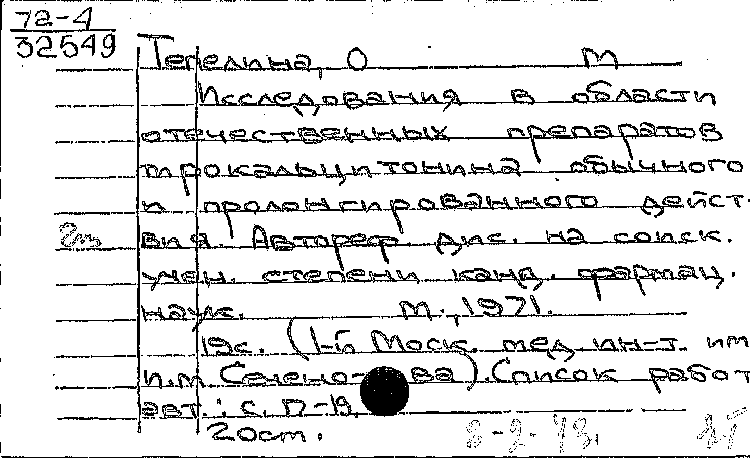 72-4
32549
Тепелина, О М
Исследования в области
отечественных препаратов
тирокальцитонина обычного
и пролонгированного дейст-
вия. Автореф. дис. на соиск.
учен. степени канд. фармац.
наук. М., 1971.
19с. (1-й Моск. мед. ин-т. им
И.М. Сечено- ва). Список работ
авт.: с.
20ст.